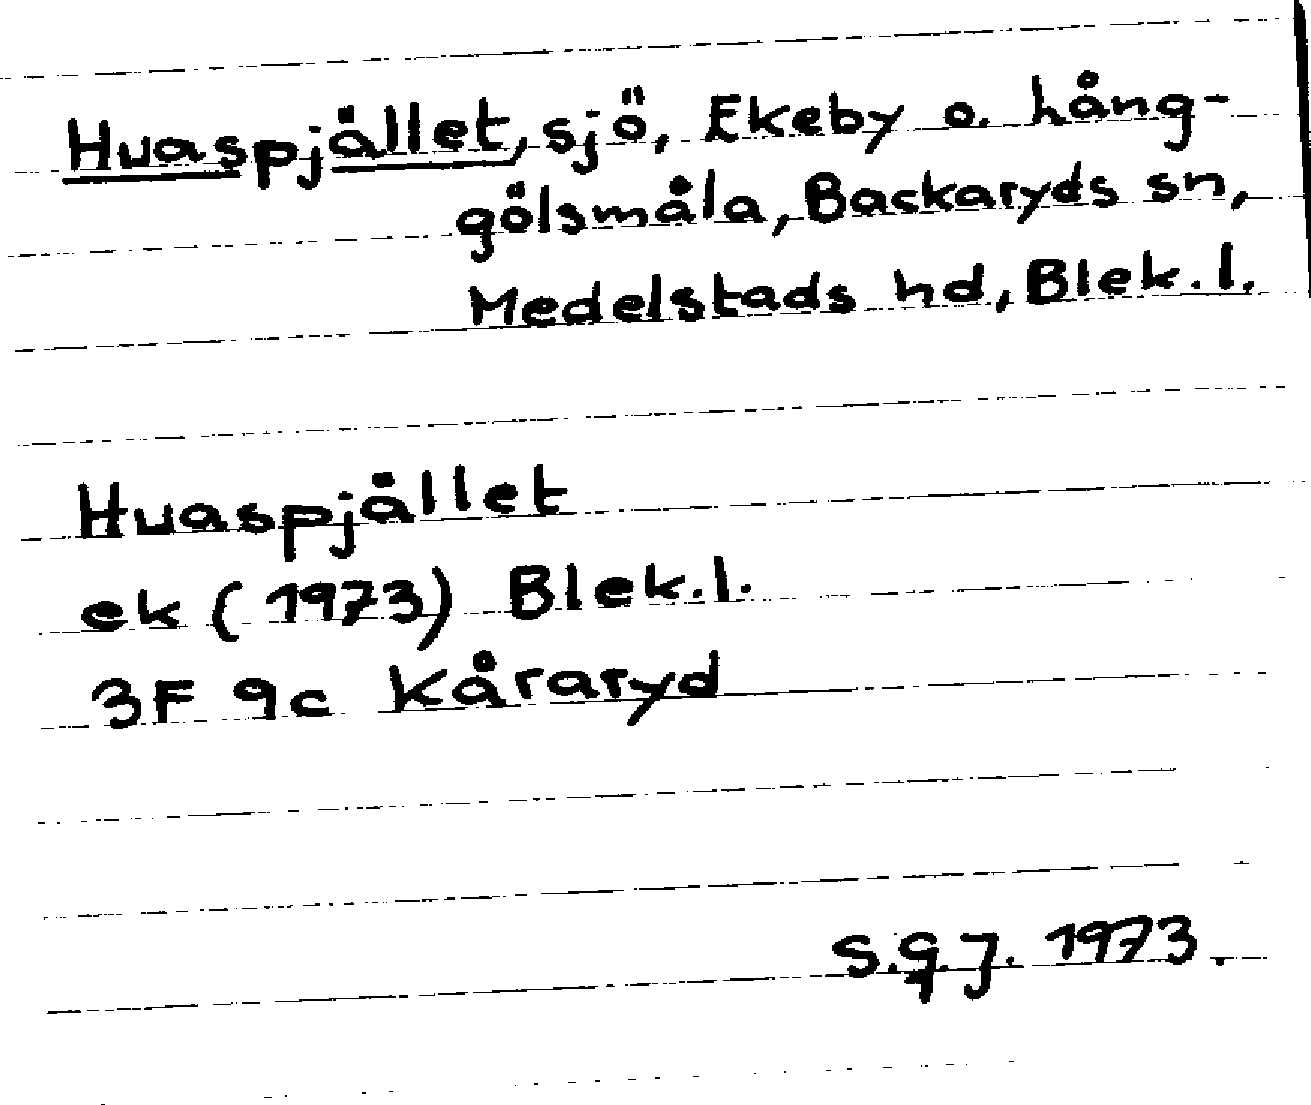 Huaspjället, sjö, Ekeby o. hång-
gölsmåla, Backaryds sn,
Medelstads hd, Blek. l.
Huaspjället
ek (1973) Blek. l.
3F 9c Kåraryd
S.G.J. 1973.